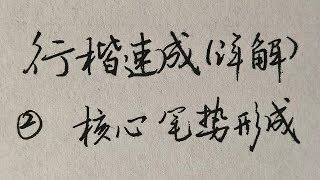 行楷速成(详解)
② 核心笔势形成